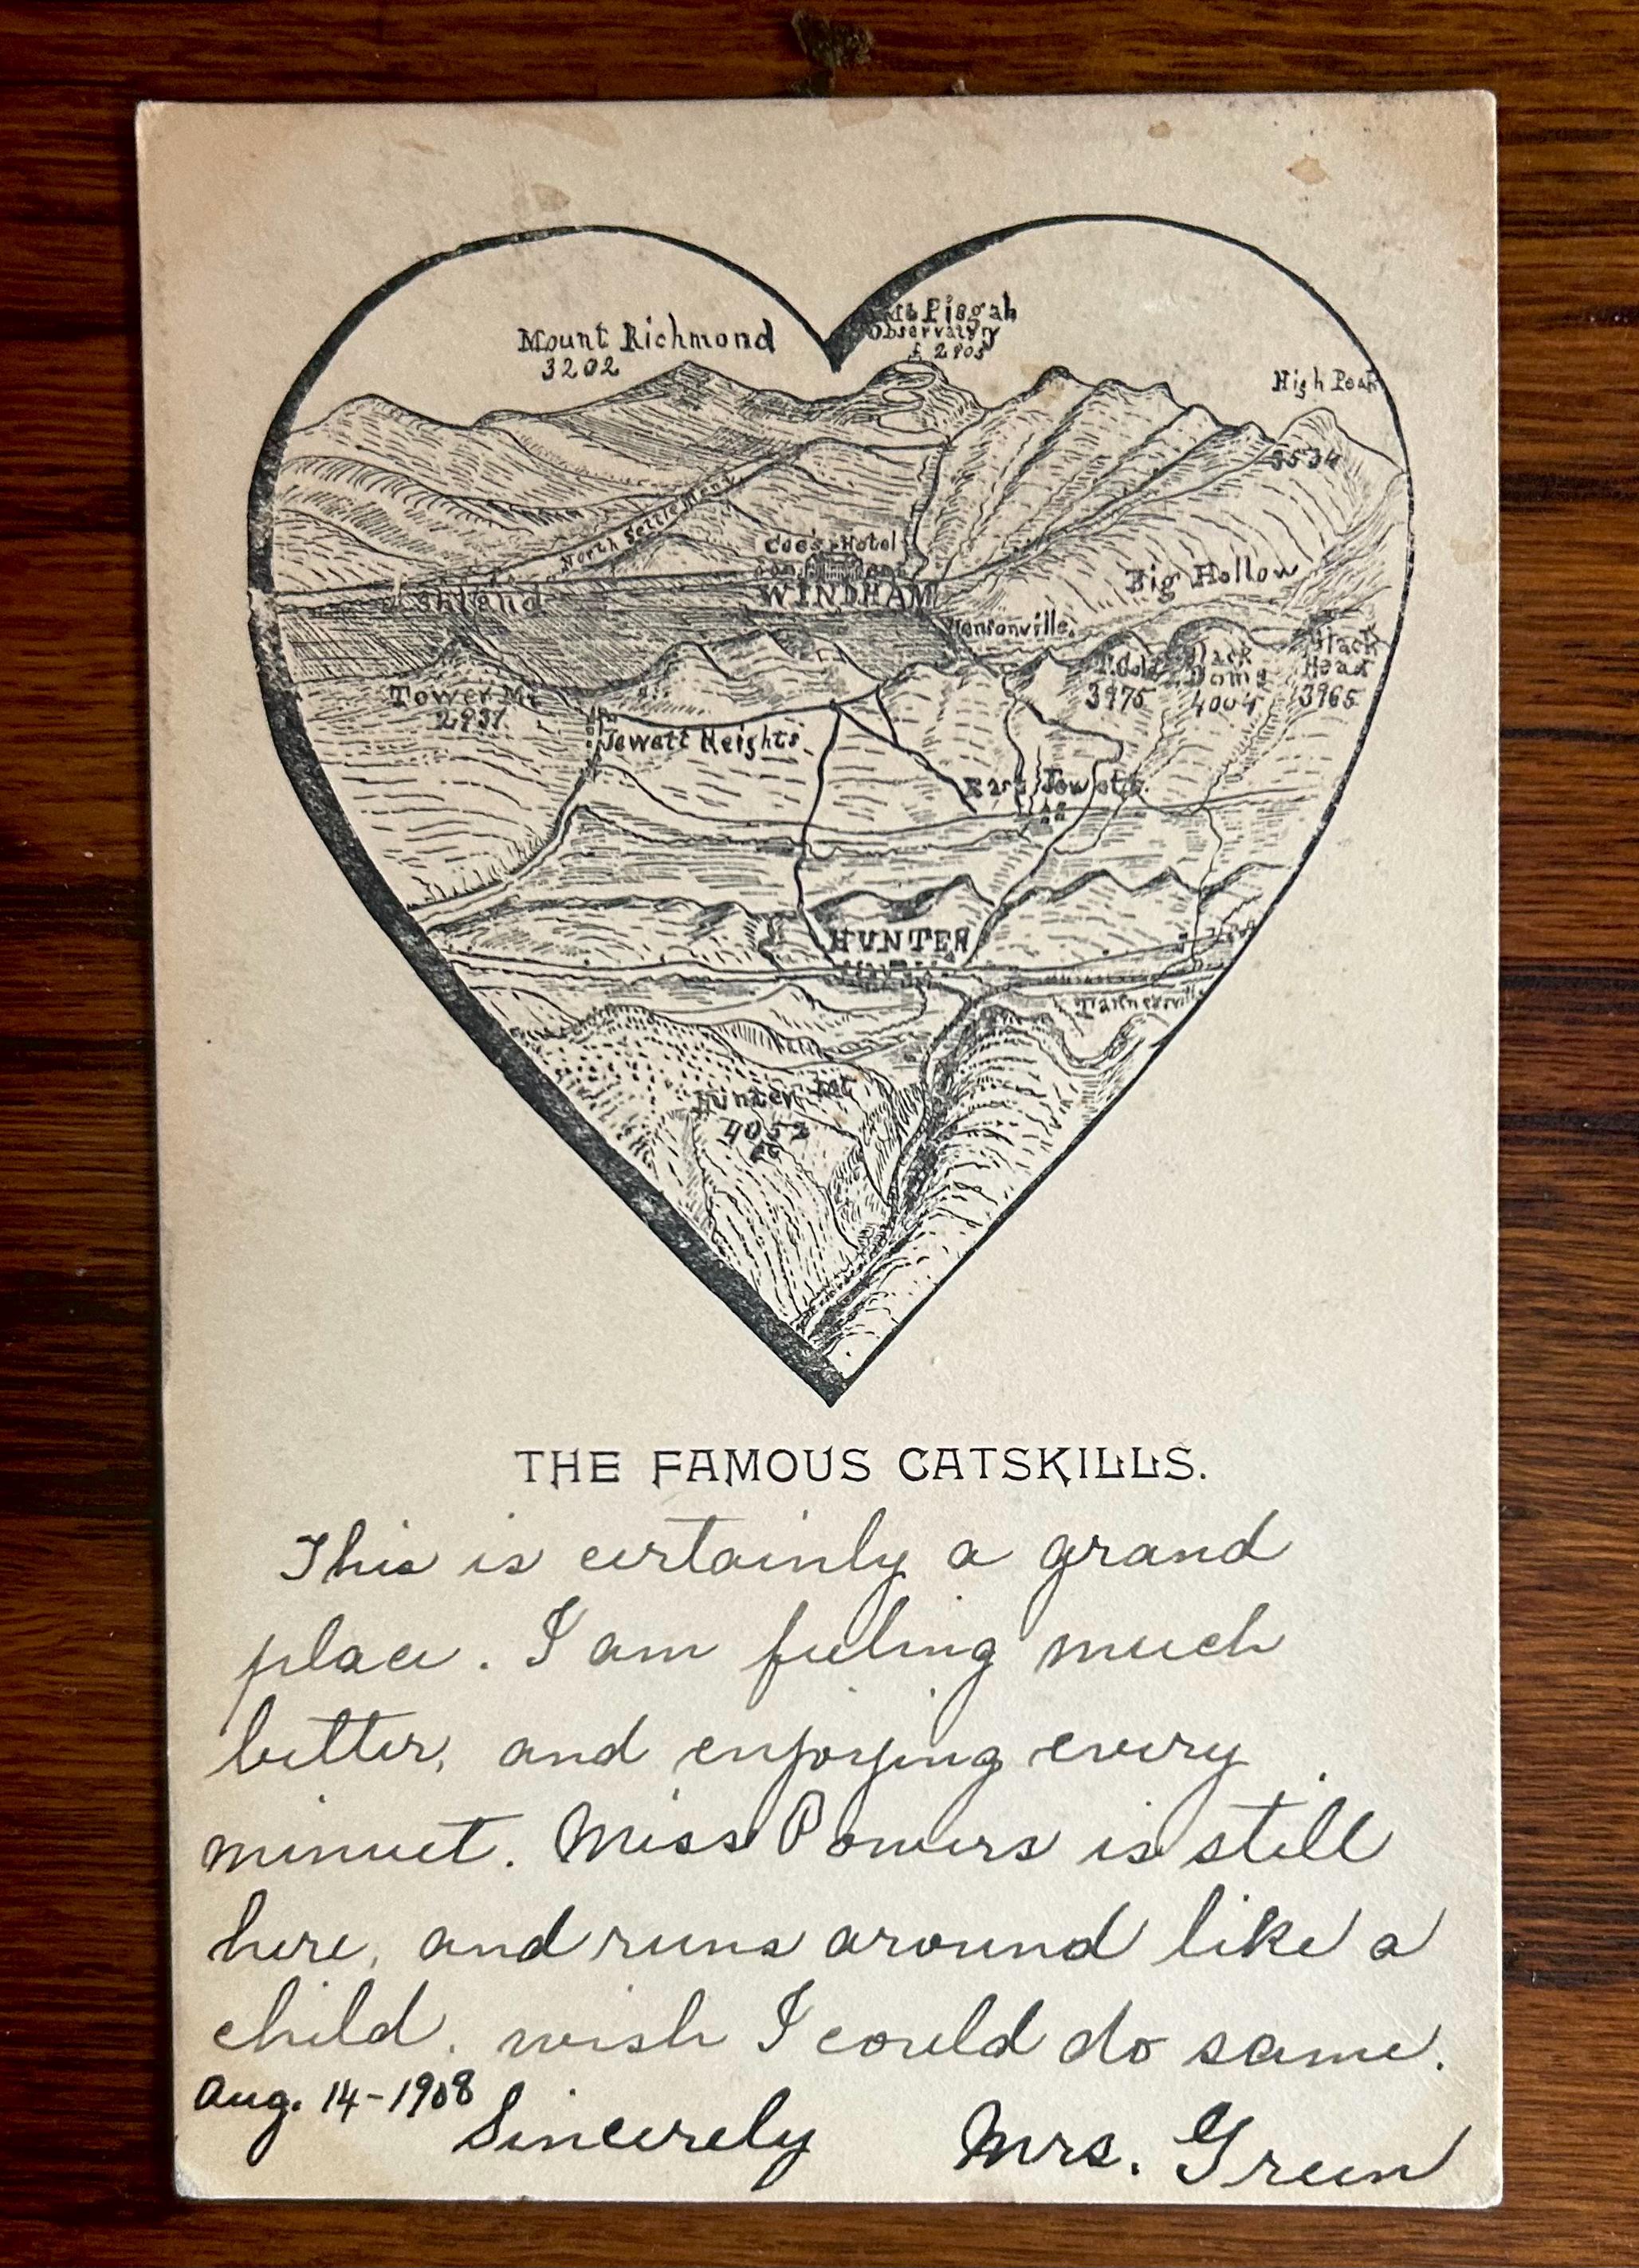 Mount Richmond
3202
Mt Pisgah
Observatory
2905
High Peak
3534
North Settlement
Coe's Hotel
WINDHAM
Ashland
Big Hollow
Hensonville.
Black
Dome
4004
Black
Head
3965
3975
Tower Mt
2937
Jewett Heights.
East Jewett
HUNTER
Tannersville
Hunter Mt
4052
THE FAMOUS CATSKILLS.
This is certainly a grand
place. I am feeling much
better, and enjoying every
minuet. Miss Powers is still
here, and runs around like a
child. wish I could do same.
Aug. 14-1908
Sincerely Mrs. Green